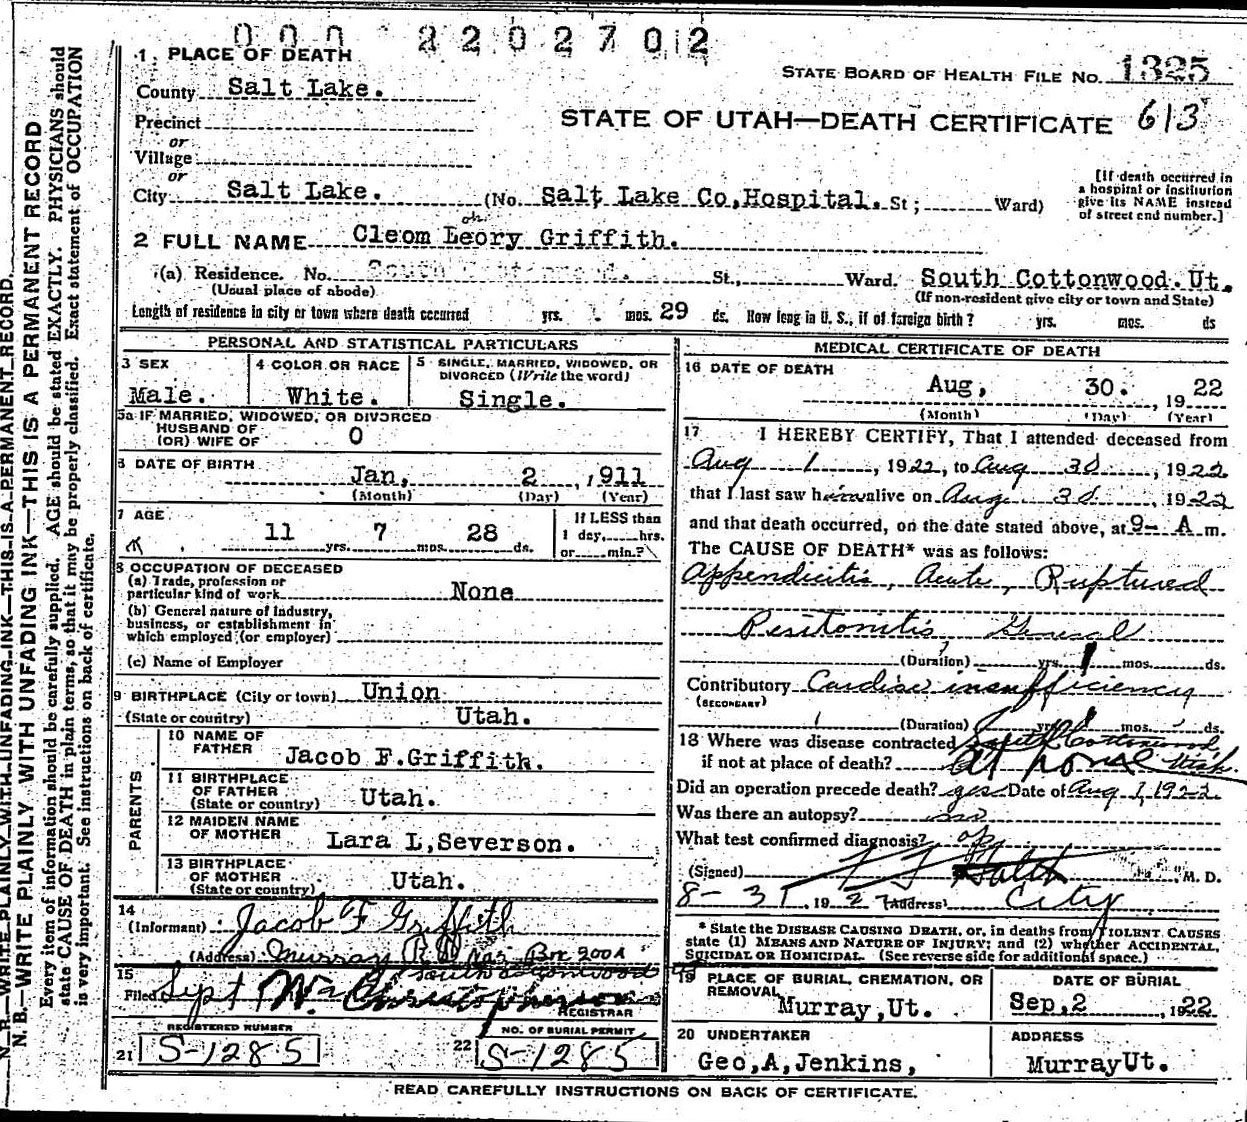 000 2202702
1 PLACE OF DEATH
STATE BOARD OF HEALTH FILE NO. 1325
County Salt Lake.
STATE OF UTAH—DEATH CERTIFICATE 613
Precinct
or
Village
or
City Salt Lake. (No. Salt Lake Co, Hospital. St; Ward)
[If death occurred in
a hospital or institution
give its NAME instead
of street end number.]
2 FULL NAME Cleom Leory Griffith.
(a) Residence. No. St., Ward. South Cottonwood. Ut.
(Usual place of abode)
(If non-resident give city or town and State)
Length of residence in city or town where death occurred yrs. mos. 29 ds. How long in U. S., if of foreign birth? yrs. mos. ds
PERSONAL AND STATISTICAL PARTICULARS
3 SEX
Male.
4 COLOR OR RACE
White.
5 SINGLE, MARRIED, WIDOWED, OR
DIVORCED (Write the word)
Single.
5a IF MARRIED, WIDOWED, OR DIVORCED
HUSBAND OF
(OR) WIFE OF 0
6 DATE OF BIRTH
Jan, 2 , 1911
(Month) (Day) (Year)
7 AGE
11 yrs. 7 mos. 28 ds.
If LESS than
1 day, hrs.
or min.?
8 OCCUPATION OF DECEASED
(a) Trade, profession or
particular kind of work None
(b) General nature of Industry,
business, or establishment in
which employed (or employer)
(c) Name of Employer
9 BIRTHPLACE (City or town) Union
(State or country) Utah.
PARENTS
10 NAME OF
FATHER Jacob F. Griffith.
11 BIRTHPLACE
OF FATHER
(State or country) Utah.
12 MAIDEN NAME
OF MOTHER Lara L, Severson.
13 BIRTHPLACE
OF MOTHER
(State or country) Utah.
14
(Informant) Jacob F Griffith
(Address) Murray R D No 5 Box 200A
South Cottonwood
15
Filed Sept Wm Christopherson
REGISTRAR
REGISTERED NUMBER
21 S-1285
NO. OF BURIAL PERMIT
22 S-1285
MEDICAL CERTIFICATE OF DEATH
16 DATE OF DEATH
Aug, 30. , 19 22
(Month) (Day) (Year)
17 I HEREBY CERTIFY, That I attended deceased from
Aug 1 , 1922, to Aug 30 , 1922
that I last saw him alive on Aug 30 1922
and that death occurred, on the date stated above, at 9- A m.
The CAUSE OF DEATH* was as follows:
Appendicitis, Acute, Ruptured
Peritonitis, General
(Duration) yrs. 1 mos. ds.
Contributory Cardiac insufficiency
(SECONDARY)
(Duration) yrs. mos. ds.
18 Where was disease contracted South Cottonwood,
if not at place of death? at home Utah.
Did an operation precede death? yes Date of Aug 1, 1922
Was there an autopsy? no
What test confirmed diagnosis? op
(Signed) M. D.
8-31, 1922 (Address) City
* State the DISEASE CAUSING DEATH, or, in deaths from VIOLENT CAUSES
state (1) MEANS AND NATURE OF INJURY; and (2) whether ACCIDENTAL,
SUICIDAL OR HOMICIDAL. (See reverse side for additional space.)
19 PLACE OF BURIAL, CREMATION, OR
REMOVAL Murray, Ut.
DATE OF BURIAL
Sep, 2 , 1922
20 UNDERTAKER
Geo, A, Jenkins,
ADDRESS
Murray Ut.
READ CAREFULLY INSTRUCTIONS ON BACK OF CERTIFICATE.
N. B.—WRITE PLAINLY WITH UNFADING INK—THIS IS A PERMANENT RECORD.
N. B.—WRITE PLAINLY WITH UNFADING INK—THIS IS A PERMANENT RECORD
Every item of information should be carefully supplied. AGE should be stated EXACTLY. PHYSICIANS should
state CAUSE OF DEATH in plain terms, so that it may be properly classified. Exact statement of OCCUPATION
is very important. See instructions on back of certificate.